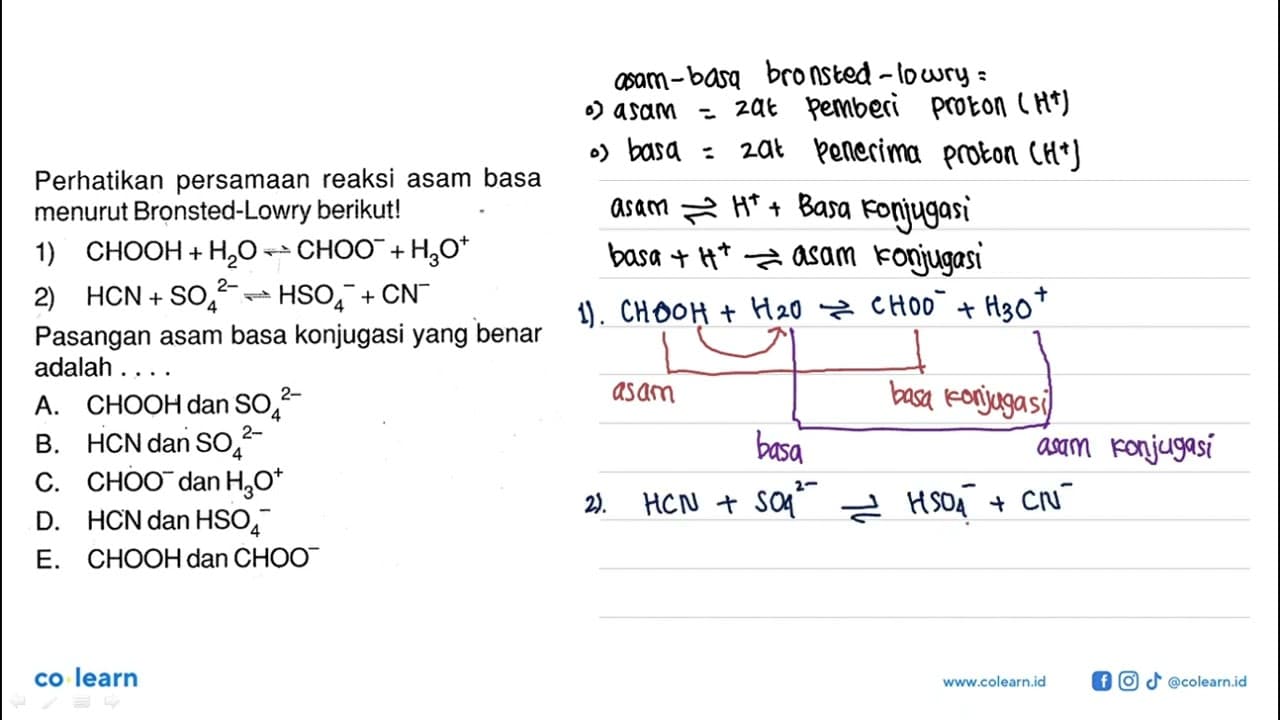 Perhatikan persamaan reaksi asam basa
menurut Bronsted-Lowry berikut!
1) CHOOH + H₂O ⇌ CHOO⁻ + H₃O⁺
2) HCN + SO₄²⁻ ⇌ HSO₄⁻ + CN⁻
Pasangan asam basa konjugasi yang benar
adalah . . . .
A. CHOOH dan SO₄²⁻
B. HCN dan SO₄²⁻
C. CHOO⁻ dan H₃O⁺
D. HCN dan HSO₄⁻
E. CHOOH dan CHOO⁻
asam-basa bronsted-lowry =
o) asam = zat pemberi proton (H⁺)
o) basa = zat penerima proton (H⁺)
asam ⇌ H⁺ + Basa konjugasi
basa + H⁺ ⇌ asam konjugasi
1). CHOOH + H₂O ⇌ CHOO⁻ + H₃O⁺
asam basa konjugasi
basa asam konjugasi
2). HCN + SO₄²⁻ ⇌ HSO₄⁻ + CN⁻
co learn
www.colearn.id @colearn.id